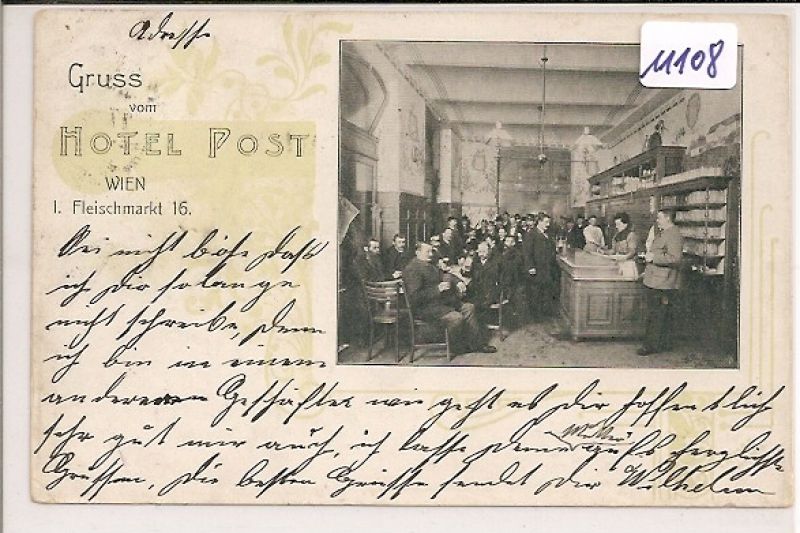 Adresse
11108
Gruss
vom
HOTEL POST
WIEN
I. Fleischmarkt 16.
Sei nicht böse daß
ich Dir so lange
nicht schreibe, denn
ich bin in einem
anderen Geschäfte wie geht es Dir hoffentlich
sehr gut mir auch, ich lasse Deine aufs herzlichste
Grüssen, Die besten Grüsse sendet Dir Wilhelm